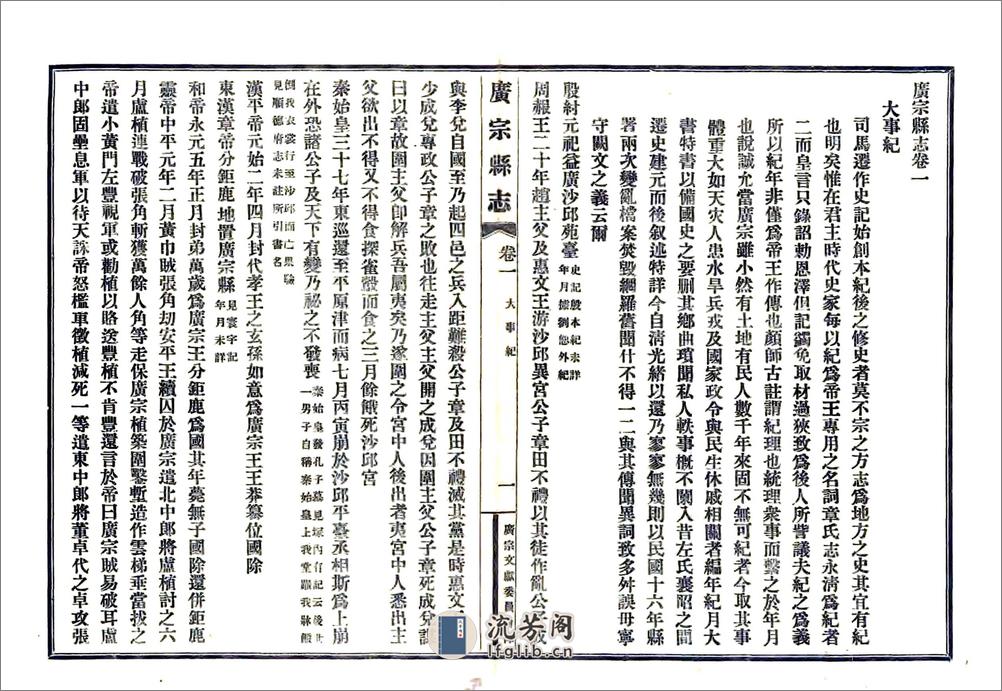 廣宗縣志卷一
大事紀
司馬遷作史記始創本紀後之修史者莫不宗之方志爲地方之史其宜有紀
也明矣惟在君主時代史家每以紀爲帝王專用之名詞章氏志永清爲紀者
二而皇言只錄詔勅恩澤但記蠲免取材過狹致爲後人所訾議夫紀之爲義
所以紀年非僅爲帝王作傳也顏師古註謂紀理也統理衆事而繫之於年月
也說誠允當廣宗雖小然有土地有民人數千年來固不無可紀者今取其事
體重大如天灾人患水旱兵戎及國家政令與民生休戚相關者編年紀月大
書特書以備國史之要刪其鄉曲瑣聞私人軼事槪不闌入昔左氏襄昭之間
遷史建元而後叙述特詳今自淸光緒以還乃寥寥無幾則以民國十六年縣
署兩次變亂檔案焚毀網羅舊聞什不得一二與其傳聞異詞致多舛誤毋寧
守闕文之義云爾
殷紂元祀益廣沙邱苑臺 史記殷本紀未詳年月據劉恕外紀
周赧王二十年趙主父及惠文王游沙邱異宮公子章田不禮以其徒作亂公子成
廣宗縣志 卷一 大事紀 一 廣宗文獻委員
與李兌自國至乃起四邑之兵入距難殺公子章及田不禮滅其黨是時惠文
少成兌專政公子章之敗也往走主父主父開之成兌因圍主父公子章死成兌謀
曰以章故圍主父卽解兵吾屬夷矣乃遂圍之令宮中人後出者夷宮中人悉出主
父欲出不得又不得食探雀鷇而食之三月餘餓死沙邱宮
秦始皇三十七年東巡還至平原津而病七月丙寅崩於沙邱平臺丞相斯爲上崩
在外恐諸公子及天下有變乃祕之不發喪 秦始皇發孔子墓見塚內有記云後世一男子自稱秦始皇上我堂踞我牀顚
倒我衣裳行至沙邱而亡果驗見順德府志未註所引書名
漢平帝元始二年四月封代孝王之玄孫如意爲廣宗王王莽篡位國除
東漢章帝分鉅鹿地置廣宗縣 見寰宇記年月未詳
和帝永元五年正月封弟萬歲爲廣宗王分鉅鹿爲國其年薨無子國除還併鉅鹿
靈帝中平元年二月黃巾賊張角劫安平王續囚於廣宗遣北中郎將盧植討之六
月盧植連戰破張角斬獲萬餘人角等走保廣宗植築圍鑿塹造作雲梯垂當拔之
帝遣小黃門左豐視軍或勸植以賂送豐植不肯豐還言於帝曰廣宗賊易破耳盧
中郎固壘息軍以待天誅帝怒檻車徵植減死一等遣東中郎將董卓代之卓攻張
流芳阁
lfglib.cn